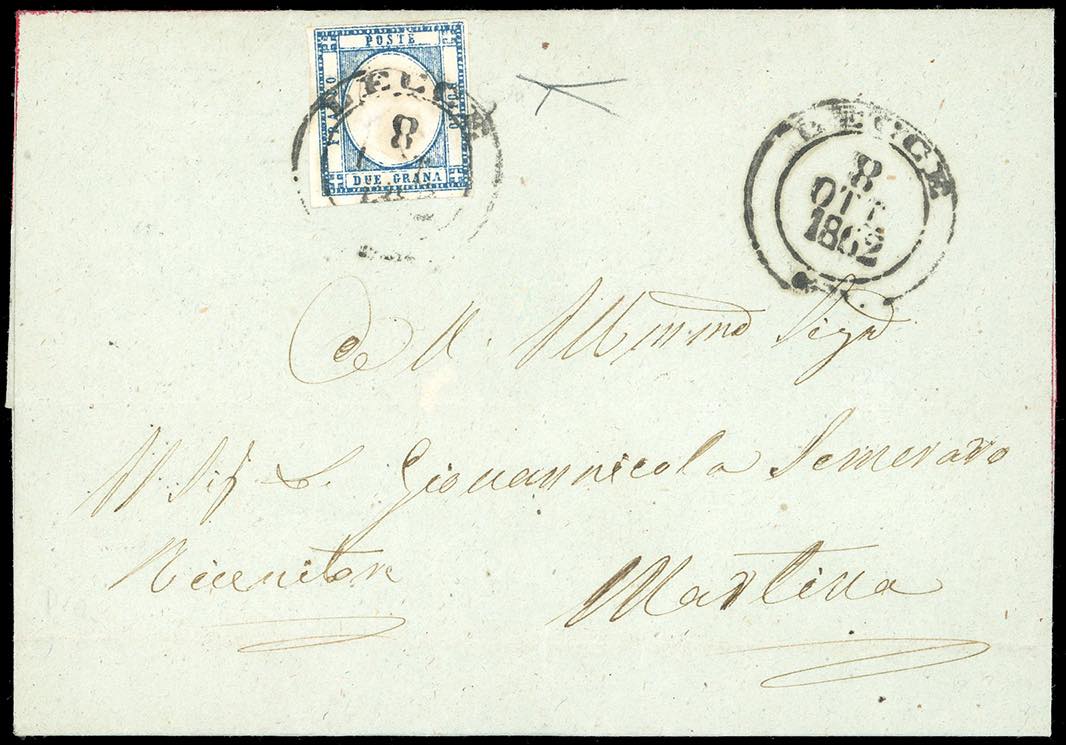 POSTE
FRANCO BOLLO
DUE GRANA
LECCE
8
LECCE
8
OTT
1862
A. Illmmo Sigr
Il Sigr D. Giovannicola Semeraro
Ricevitore Martina